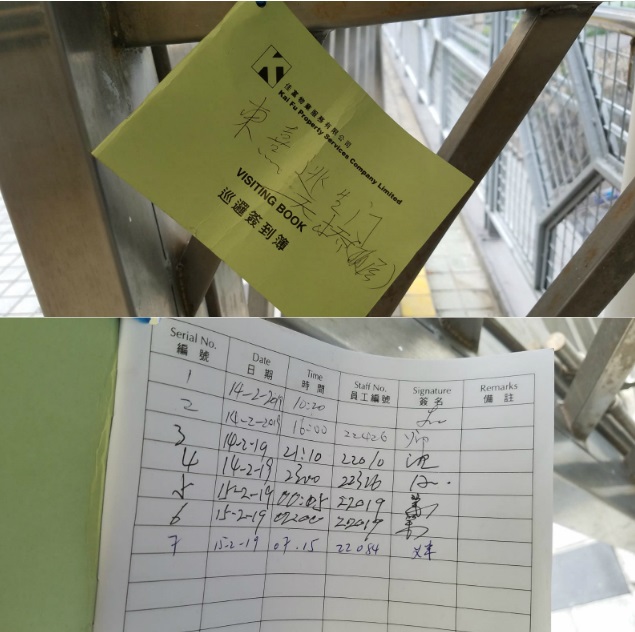 佳富物業服務有限公司
Kai Fu Property Services Company Limited
東
逃生门
VISITING BOOK
天桥
巡邏簽到簿
Serial No. Date Time Staff No. Signature Remarks
編號 日期 時間 員工編號 簽名 備註
1 14-2-2019 10:20
2 14-2-2019 16:00 22426 Yip
3 14-2-19 21:10 22010
4 14-2-19 2300 22326
5 15-2-19 00:05 22019
6 15-2-19 0200 22019
7 15-2-19 07.15 22084